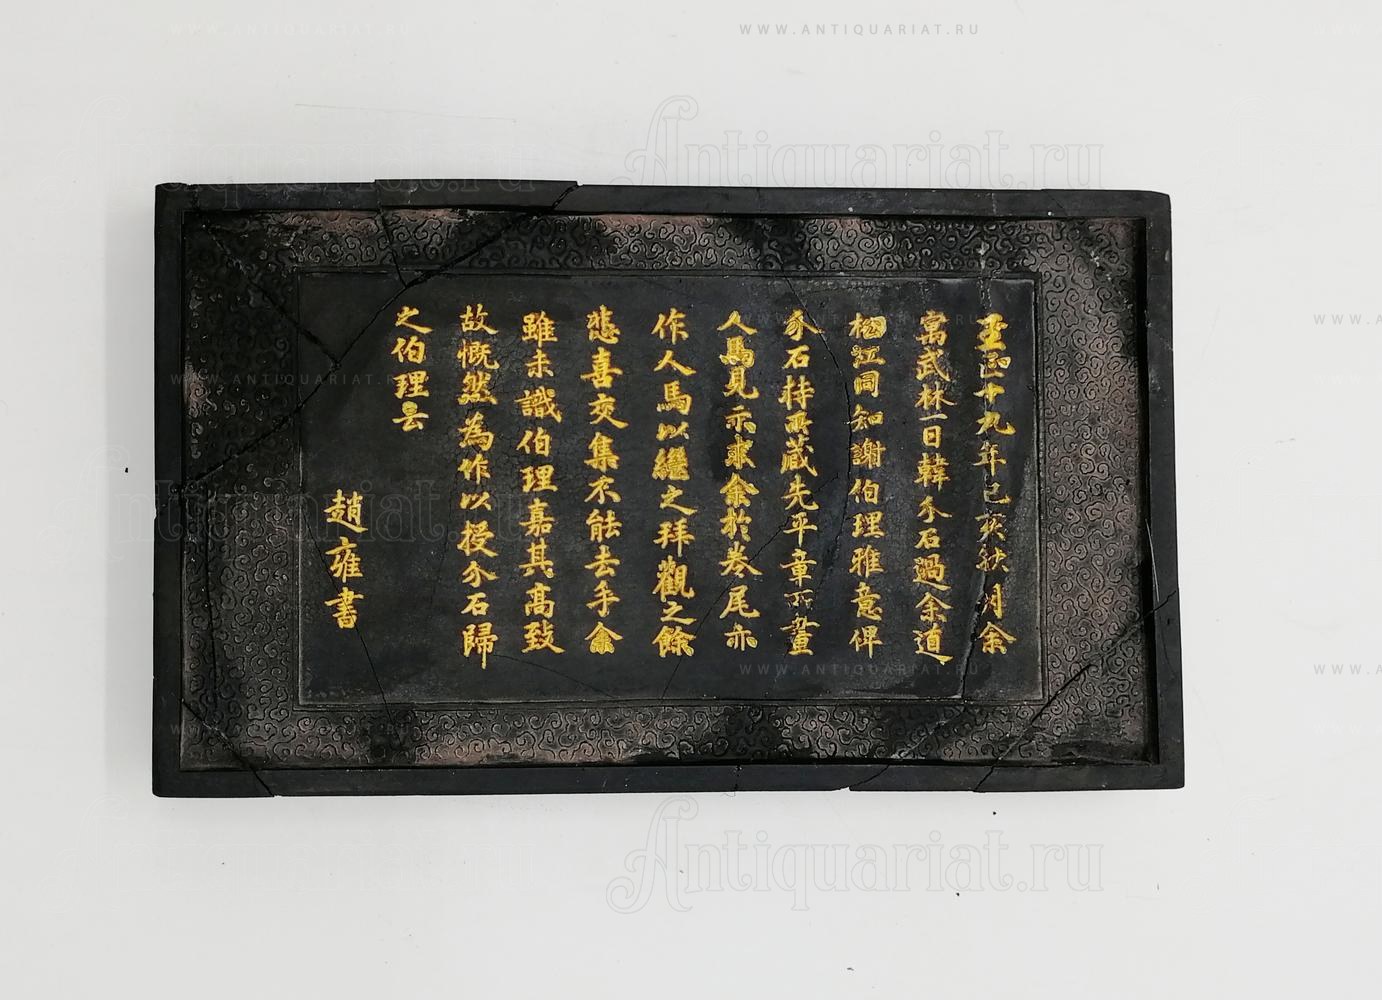 至正十九年己亥秋月余
寓武林一日韓介石過余道
松江同知謝伯理雅意俾
介石持所藏先平章所畫
人馬見示求余於卷尾亦
作人馬以繼之拜觀之餘
悲喜交集不能去手余
雖未識伯理嘉其高致
故慨然為作以授介石歸
之伯理云
趙雍書
WWW.ANTIQUARIAT.RU
Antiquariat.ru
WWW.ANTIQUARIAT.RU
Antiquariat.ru